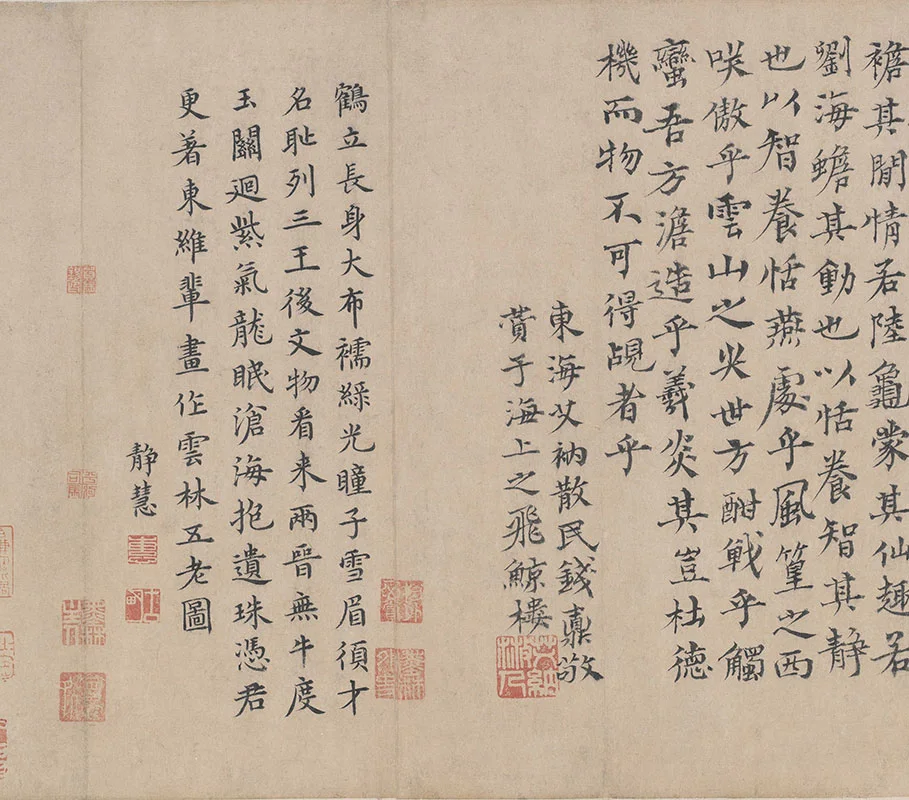 襜其閒情若陸龜蒙其仙趣若
劉海蟾其動也以恬養智其静
也以智養恬燕處乎風篁之西
咲傲乎雲山之尖世方酣戰乎觸
蠻吾方澹造乎羲炎其豈杜德
機而物不可得覘者乎
東海艾衲散民錢鼒敬
賛于海上之飛鯨樓
鶴立長身大布襦緑光瞳子雪眉須才
名耻列三王後文物看来兩晉無牛度
玉關迴紫氣龍眠滄海抱遺珠憑君
更著東維輩畫作雲林五老圖
静慧